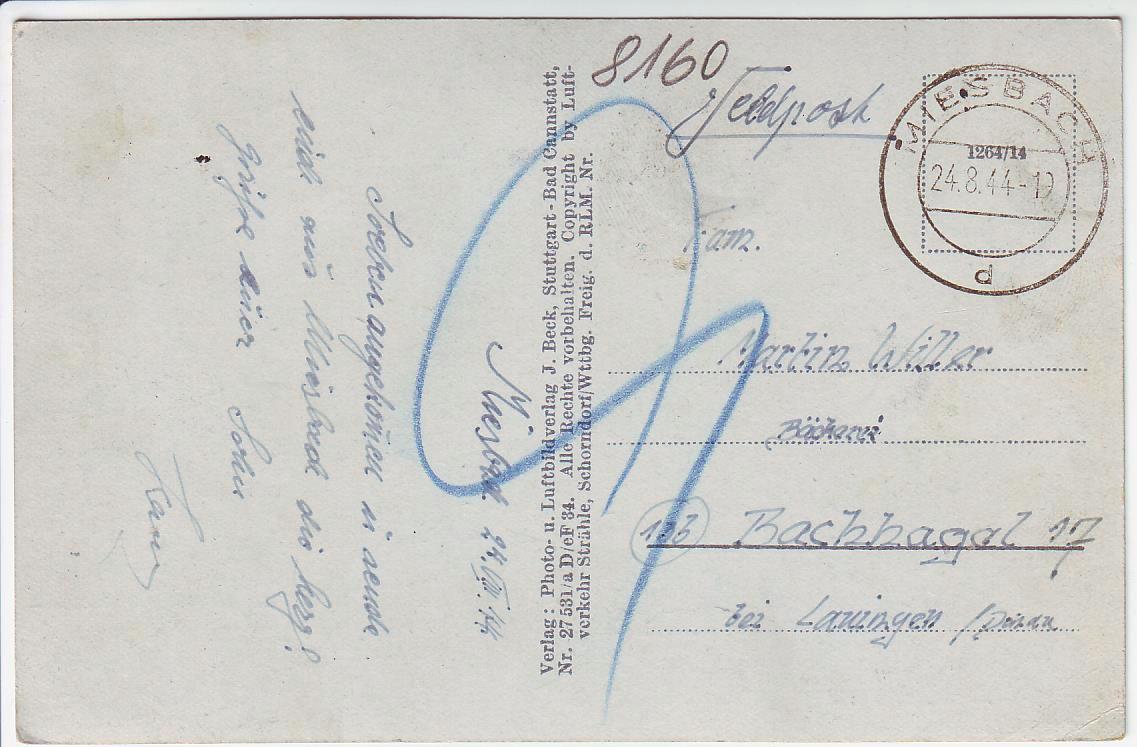 8160
Feldpost
MIESBACH
1264/14
24.8.44-12
d
Fam.
Martin Willer
Bäckerei
(13b) Bachhagel 17
bei Lauingen /Donau
Verlag: Photo- u. Luftbildverlag J. Beck, Stuttgart-Bad Cannstatt,
Nr. 27531/a D/eF 34. Alle Rechte vorbehalten. Copyright by Luft-
verkehr Strähle, Schorndorf/Wttbg. Freig. d. RLM. Nr.
Miesbach 24.VIII.44
Soeben angekom̄en u. sende
Euch aus Miesbach die herzl.
Grüße Euer Sohn